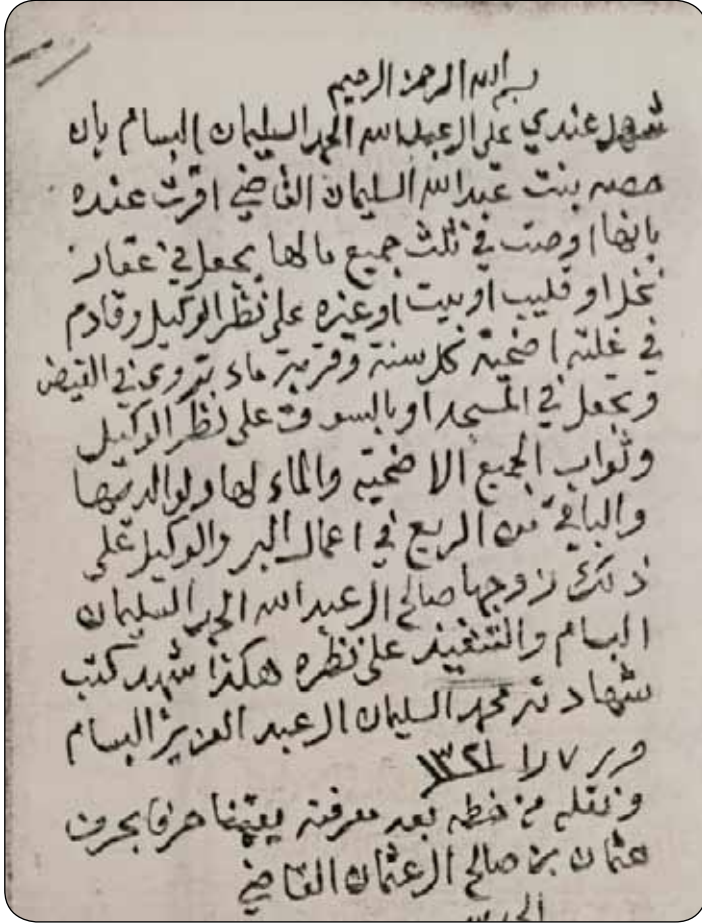 بسم الله الرحمن الرحيم
شهد عندي علي العبدالله الحمد السليمان البسام بان
حصه بنت عبدالله السليمان القاضي اقرت عنده
بانها اوصت في ثلث جميع مالها يجعل في عقار
نخل او قليب او بيت او غيره على نظر الوكيل وقادم
في غلته اضحية كل سنة وقربة ماء تروى في القيض
وتجعل في المسجد او بالسوق على نظر الوكيل
وثواب الجميع الاضحية والماء لها ولوالديها
والباقي من الريع في اعمال البر والوكيل على
ذلك زوجها صالح العبدالله الحمد السليمان
البسام والتنفيذ على نظره هكذا شهد كتب
شهادته محمد السليمان العبدالعزيز البسام
١٣٢١
ونقله من خطه بعد معرفته يقينا حرفا بحرف
عثمان بن صالح العثمان القاضي